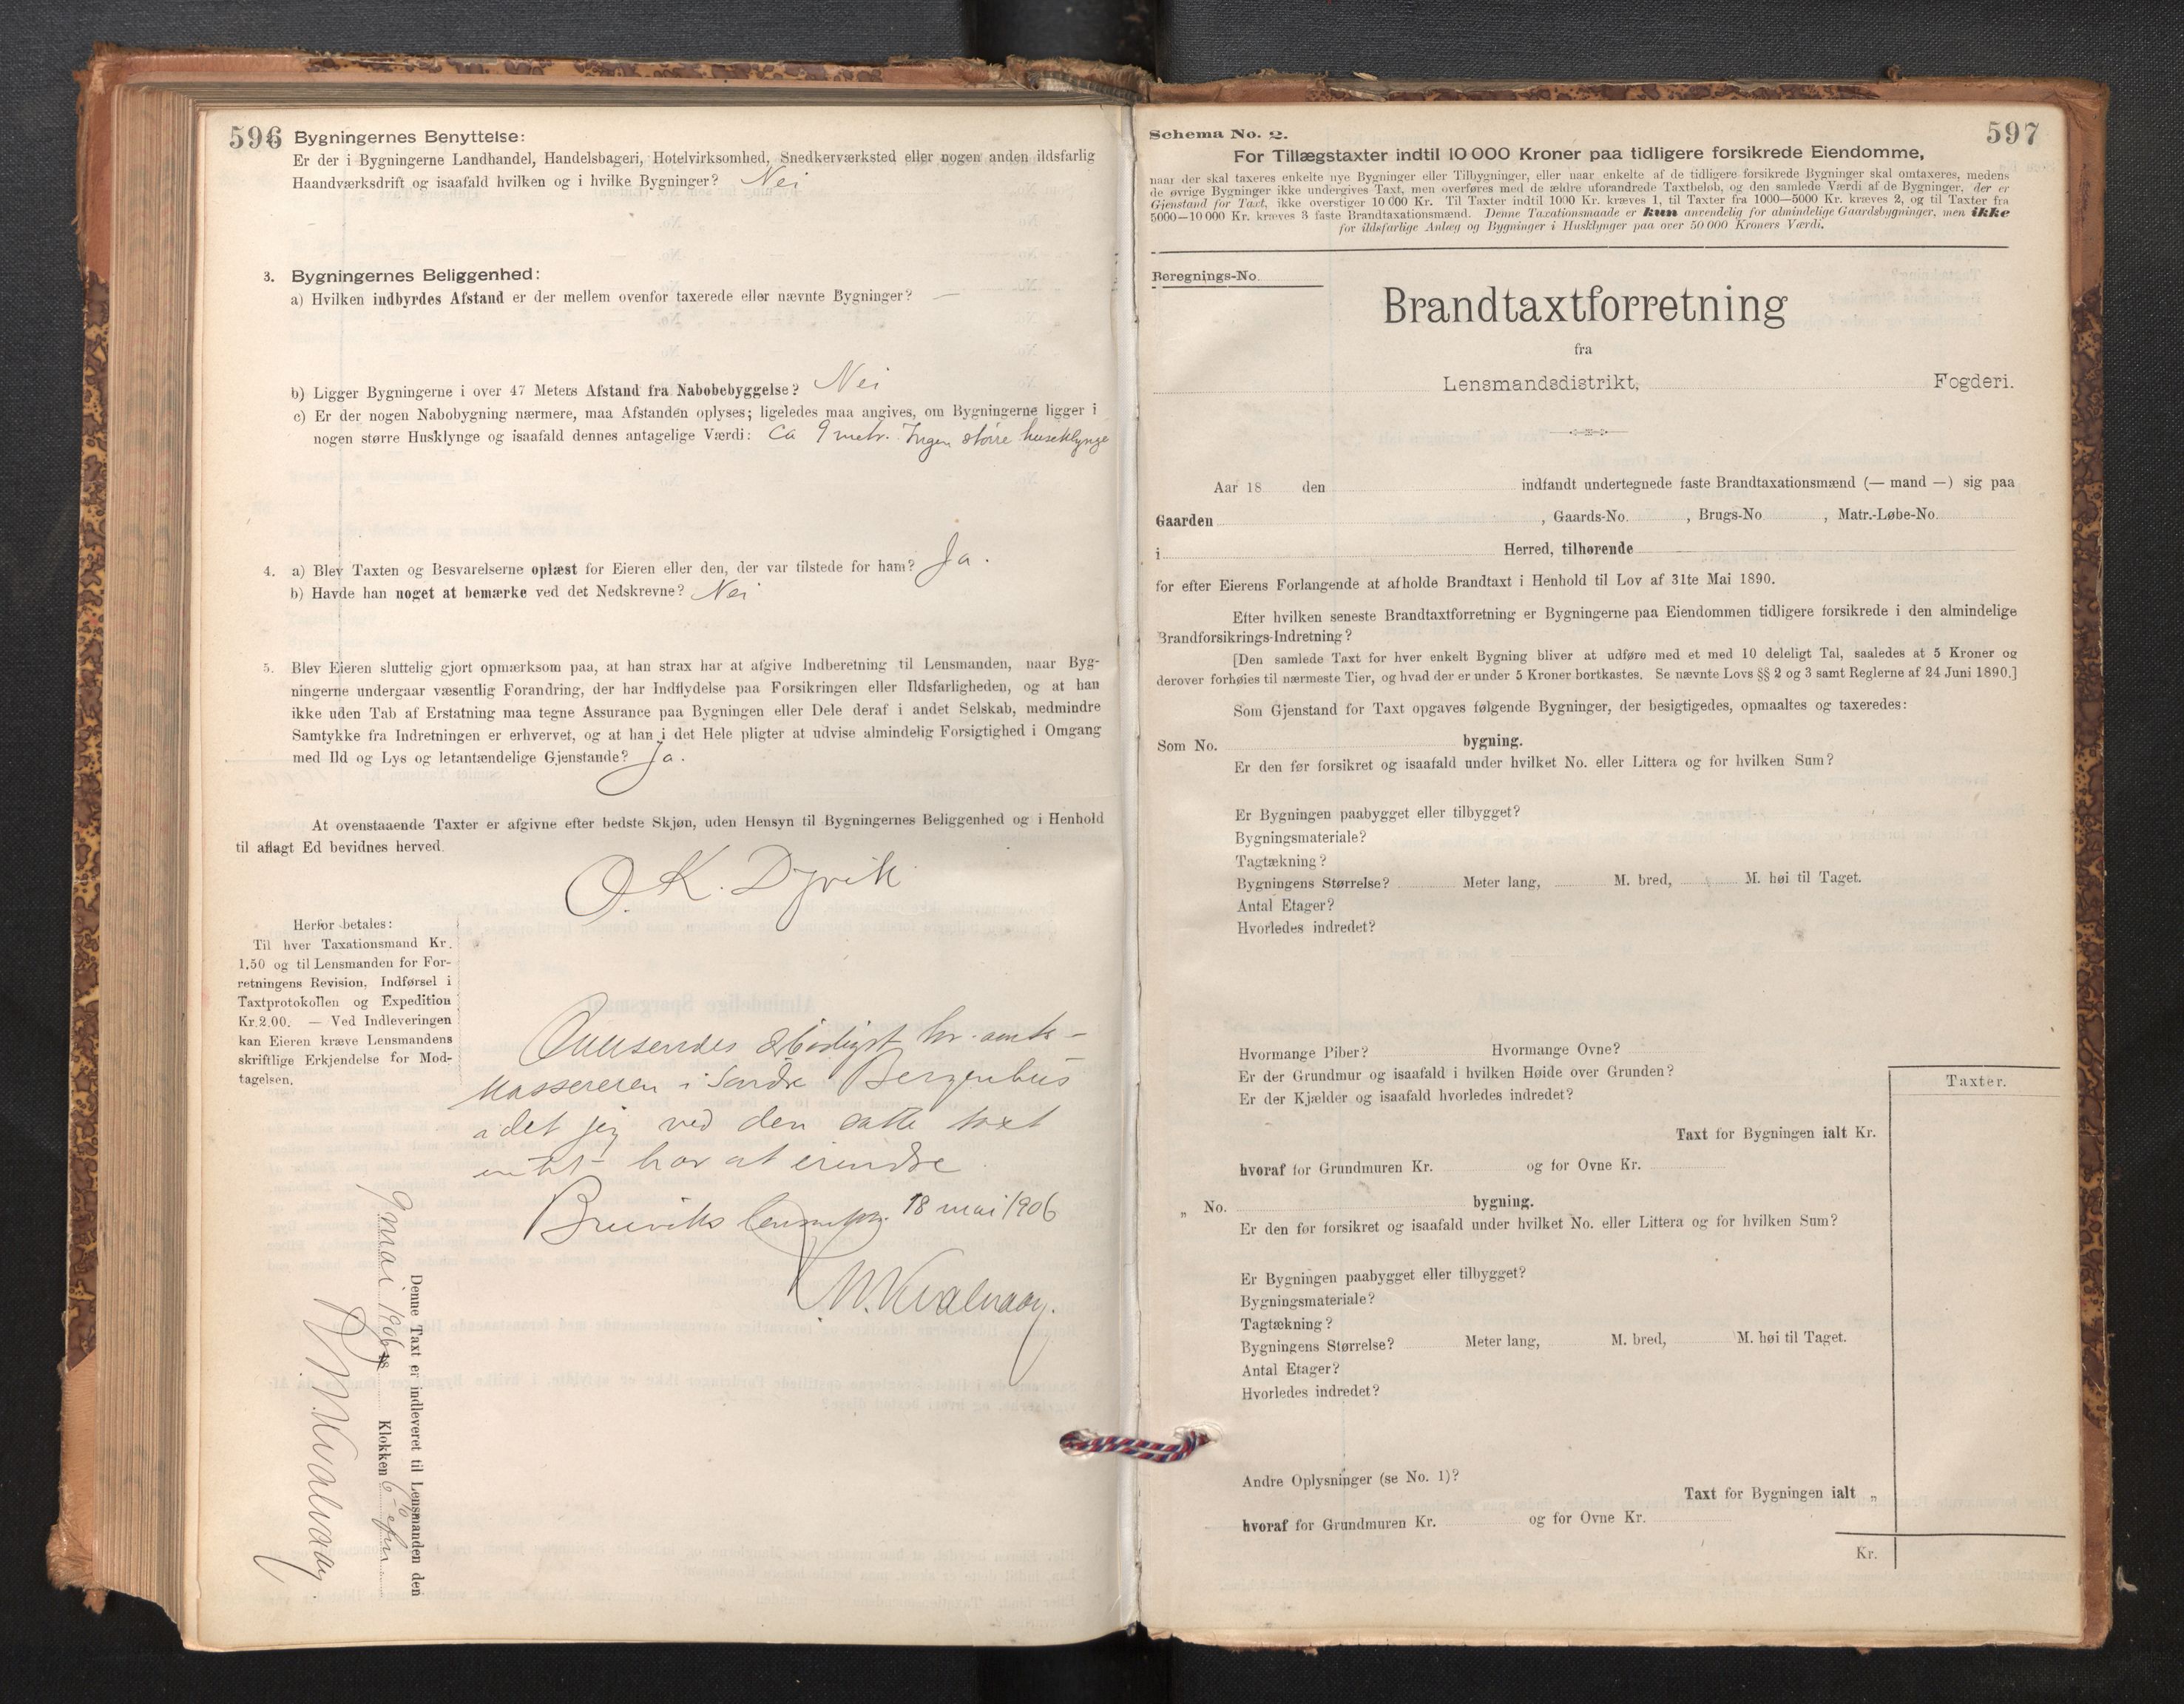 596
Bygningernes Benyttelse:
Er der i Bygningerne Landhandel, Handelsbageri, Hotelvirksomhed, Snedkerværksted eller nogen anden ildsfarlig
Haandværksdrift og isaafald hvilken og i hvilke Bygninger? Nei
3. Bygningernes Beliggenhed:
a) Hvilken indbyrdes Afstand er der mellem ovenfor taxerede eller nævnte Bygninger? —
b) Ligger Bygningerne i over 47 Meters Afstand fra Nabobebyggelse? Nei
c) Er der nogen Nabobygning nærmere, maa Afstanden oplyses; ligeledes maa angives, om Bygningerne ligger i
nogen større Husklynge og isaafald dennes antagelige Værdi: ca 9 metr. Ingen større huseklynge
4. a) Blev Taxten og Besvarelserne oplæst for Eieren eller den, der var tilstede for ham? Ja.
b) Havde han noget at bemærke ved det Nedskrevne? Nei
5. Blev Eieren sluttelig gjort opmærksom paa, at han strax har at afgive Indberetning til Lensmanden, naar Byg-
ningerne undergaar væsentlig Forandring, der har Indflydelse paa Forsikringen eller Ildsfarligheden, og at han
ikke uden Tab af Erstatning maa tegne Assurance paa Bygningen eller Dele deraf i andet Selskab, medmindre
Samtykke fra Indretningen er erhvervet, og at han i det Hele pligter at udvise almindelig Forsigtighed i Omgang
med Ild og Lys og letantændelige Gjenstande? Ja.
At ovenstaaende Taxter er afgivne efter bedste Skjøn, uden Hensyn til Bygningernes Beliggenhed og i Henhold
til aflagt Ed bevidnes herved.
O. K. Dyvik
Herfor betales:
Til hver Taxationsmand Kr.
1.50 og til Lensmanden for For-
retningens Revision, Indførsel i
Taxtprotokollen og Expedition
Kr. 2.00. — Ved Indleveringen
kan Eieren kræve Lensmandens
skriftlige Erkjendelse for Mod-
tagelsen.
Omsendes ærbødigst hr. amts-
kassereren i Søndre Bergenhus
idet jeg ved den satte taxt
intet har at erindre
Bruviks 18 mai 1906
M. Kvalvaag.
Denne Taxt er indleveret til Lensmanden den
9 mai 1906 18 Klokken 6 efm
M. Kvalvaag
597
Schema No. 2.
For Tillægstaxter indtil 10 000 Kroner paa tidligere forsikrede Eiendomme,
naar der skal taxeres enkelte nye Bygninger eller Tilbygninger, eller naar enkelte af de tidligere forsikrede Bygninger skal omtaxeres, medens
de øvrige Bygninger ikke undergives Taxt, men overføres med de ældre uforandrede Taxtbeløb, og den samlede Værdi af de Bygninger, der er
Gjenstand for Taxt, ikke overstiger 10 000 Kr. Til Taxter indtil 1000 Kr. kræves 1, til Taxter fra 1000—5000 Kr. kræves 2, og til Taxter fra
5000—10 000 Kr. kræves 3 faste Brandtaxationsmænd. Denne Taxationsmaade er kun anvendelig for almindelige Gaardsbygninger, men ikke
for ildsfarlige Anlæg og Bygninger i Husklynger paa over 50 000 Kroners Værdi.
Beregnings-No.
Brandtaxtforretning
fra
Lensmandsdistrikt, Fogderi.
Aar 18 den indfandt undertegnede faste Brandtaxationsmænd (— mand —) sig paa
Gaarden , Gaards-No. , Brugs-No. , Matr.-Løbe-No.
i Herred, tilhørende
for efter Eierens Forlangende at afholde Brandtaxt i Henhold til Lov af 31te Mai 1890.
Efter hvilken seneste Brandtaxtforretning er Bygningerne paa Eiendommen tidligere forsikrede i den almindelige
Brandforsikrings-Indretning?
[Den samlede Taxt for hver enkelt Bygning bliver at udføre med et med 10 deleligt Tal, saaledes at 5 Kroner og
derover forhøies til nærmeste Tier, og hvad der er under 5 Kroner bortkastes. Se nævnte Lovs §§ 2 og 3 samt Reglerne af 24 Juni 1890.]
Som Gjenstand for Taxt opgaves følgende Bygninger, der besigtigedes, opmaaltes og taxeredes:
Som No. bygning.
Er den før forsikret og isaafald under hvilket No. eller Littera og for hvilken Sum?
Er Bygningen paabygget eller tilbygget?
Bygningsmateriale?
Tagtækning?
Bygningens Størrelse? Meter lang, M. bred, M. høi til Taget.
Antal Etager?
Hvorledes indredet?
Hvormange Piber? Hvormange Ovne?
Er der Grundmur og isaafald i hvilken Høide over Grunden?
Er der Kjælder og isaafald hvorledes indredet?
Taxter.
Taxt for Bygningen ialt Kr.
hvoraf for Grundmuren Kr. og for Ovne Kr.
„ No. bygning.
Er den før forsikret og isaafald under hvilket No. eller Littera og for hvilken Sum?
Er Bygningen paabygget eller tilbygget?
Bygningsmateriale?
Tagtækning?
Bygningens Størrelse? Meter lang, M. bred, M. høi til Taget.
Antal Etager?
Hvorledes indredet?
Andre Oplysninger (se No. 1)?
Taxt for Bygningen ialt „
hvoraf for Grundmuren Kr. og for Ovne Kr.
Kr.